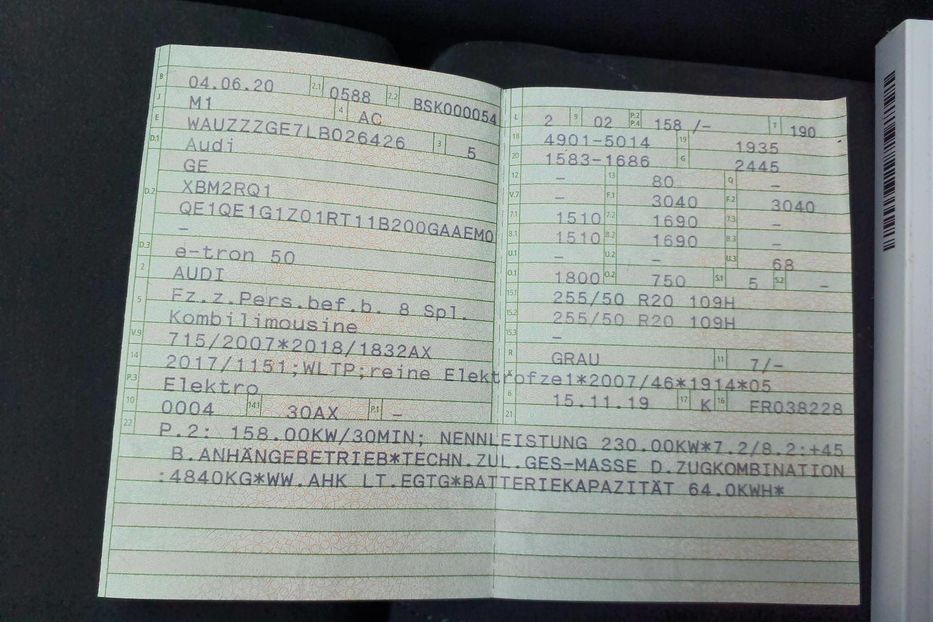 B 04.06.20 2.1 0588 2.2 BSK000054
J M1 4 AC
E WAUZZZGE7LB026426 3 5
D.1 Audi
GE
D.2 XBM2RQ1
QE1QE1G1Z01RT11B200GAAEM0
–
D.3 e-tron 50
2 AUDI
5 Fz.z.Pers.bef.b. 8 Spl.
Kombilimousine
V.9 715/2007*2018/1832AX
14 2017/1151;WLTP;reine Elektrofz
P.3 Elektro
10 0004 14.1 30AX P.1 –
L 2 9 02 P.2 P.4 158 /– T 190
18 4901-5014 19 1935
20 1583-1686 G 2445
12 – 13 80 Q –
V.7 – F.1 3040 F.2 3040
7.1 1510 7.2 1690 7.3 –
8.1 1510 8.2 1690 8.3 –
U.1 – U.2 – U.3 68
O.1 1800 O.2 750 S.1 5 S.2 –
15.1 255/50 R20 109H
15.2 255/50 R20 109H
15.3 –
R GRAU 11 7/–
K e1*2007/46*1914*05
6 15.11.19 17 K 16 FR038228
21
22 P.2: 158.00KW/30MIN; NENNLEISTUNG 230.00KW*7.2/8.2:+45
B.ANHÄNGEBETRIEB*TECHN.ZUL.GES-MASSE D.ZUGKOMBINATION
:4840KG*WW.AHK LT.EGTG*BATTERIEKAPAZITÄT 64.0KWH*